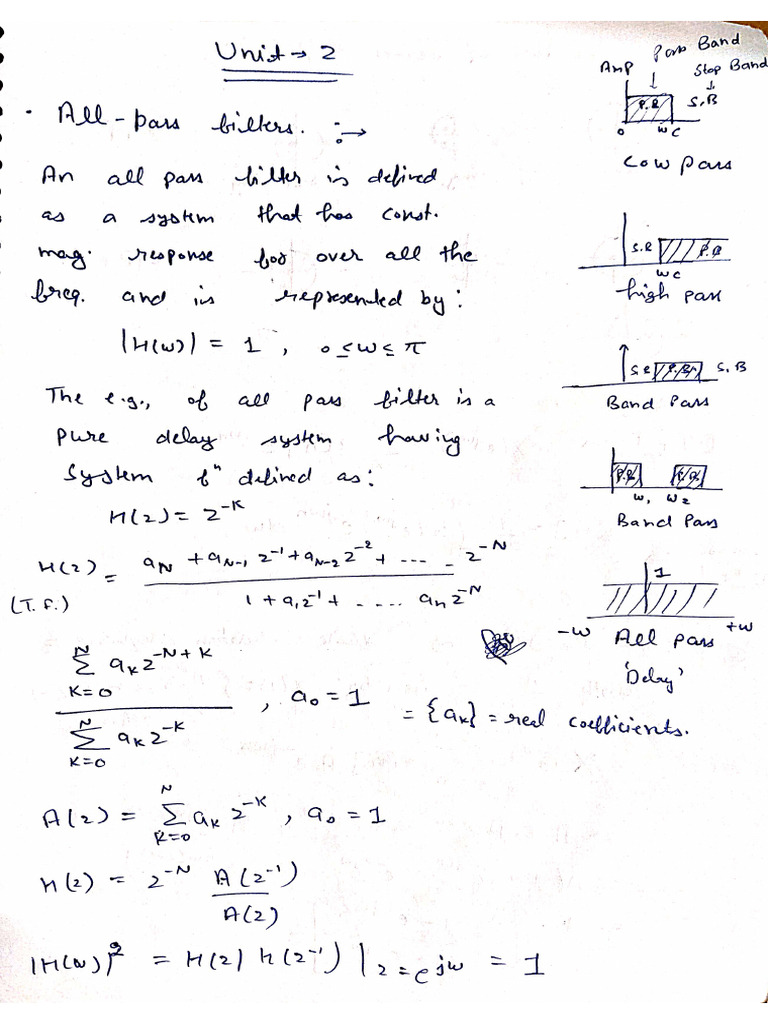 Unit → 2
• All-pass filters. :→
An all pass filter is defined
as a system that has const.
mag. response for over all the
freq. and is represented by:
|H(ω)| = 1 , 0 ≤ ω ≤ π
The e.g., of all pass filter is a
pure delay system having
system fⁿ defined as:
H(z) = z^-K
H(z) = a_N + a_N-1 z^-1 + a_N-2 z^-2 + ---- - z^-N
1 + a_1 z^-1 + - .... a_n z^-N
(T.f.)
N Σ K=0 a_K z^-N+K
N Σ K=0 a_K z^-K
, a_0 = 1
= {a_K} = real coefficients.
A(z) = N Σ K=0 a_K z^-K , a_0 = 1
H(z) = z^-N A(z^-1)
A(z)
|H(ω)|^2 = H(z) H(z^-1) | z = e^jω = 1
Pass Band
Amp ↓ Stop Band
↓
P.B S.B
0 ωc
Low pass
S.B P.B
ωc
high pass
S.B P.B. S.B
Band Pass
P.B. P.B.
ω1 ω2
Band Pass
1
-ω +ω
All pass
'Delay'